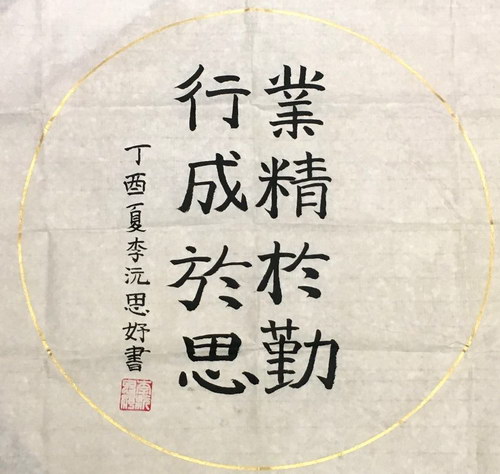 業精於勤
行成於思
丁酉夏李沅思好書